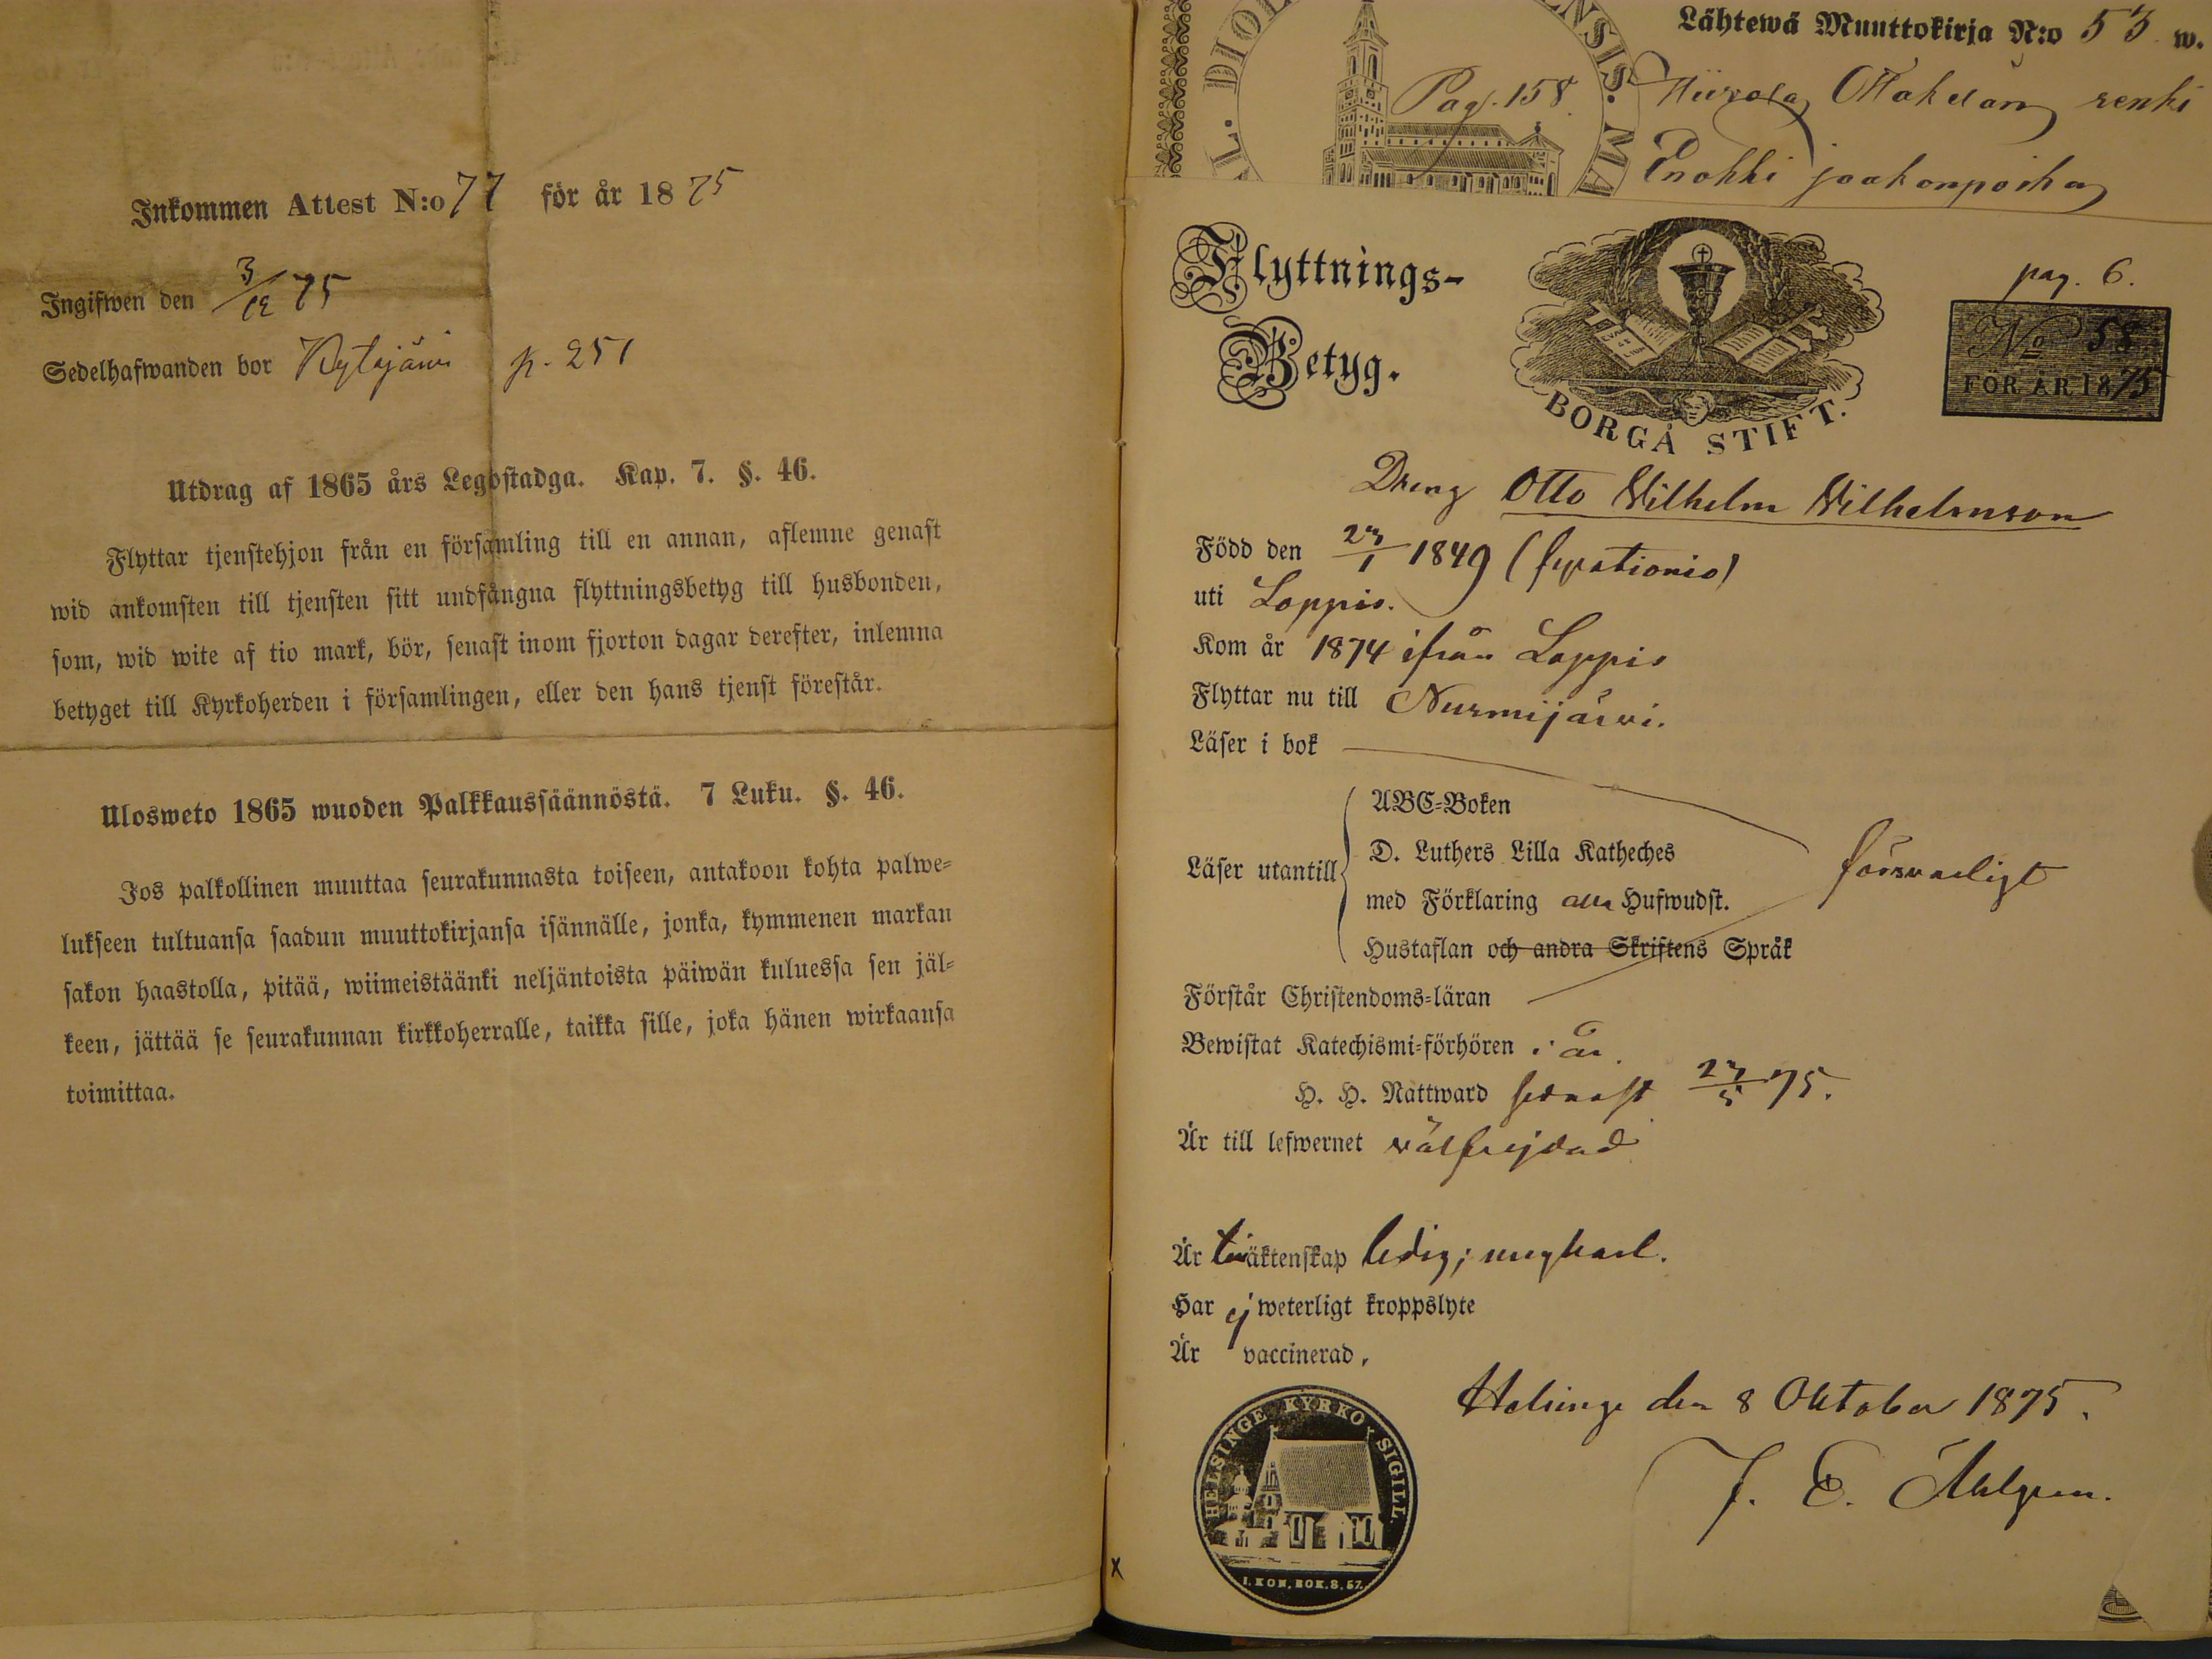 Inkommen Attest N:o 77 för år 1875
Ingifwen den 3/12 75
Sedelhafwanden bor Kytäjärvi p. 251
Utdrag af 1865 års Legostadga. Kap. 7. §. 46.
Flyttar tjenstehjon från en församling till en annan, aflemne genast
wid ankomsten till tjensten sitt undfångna flyttningsbetyg till husbonden,
som, wid wite af tio mark, bör, senast inom fjorton dagar derefter, inlemna
betyget till Kyrkoherden i församlingen, eller den hans tjenst förestår.
Ulosweto 1865 wuoden Palkkaussäännöstä. 7 Luku. §. 46.
Jos palkollinen muuttaa seurakunnasta toiseen, antakoon kohta palwe=
lukseen tultuansa saadun muuttokirjansa isännälle, jonka, kymmenen markan
sakon haastolla, pitää, wiimeistäänki neljäntoista päiwän kuluessa sen jäl=
keen, jättää se seurakunnan kirkkoherralle, taikka sille, joka hänen wirkaansa
toimittaa.
Lähtewä Muuttokirja N:o 53 w.
Pag. 158
renki
Enokki Jaakonpoika
Flyttnings-
Betyg.
BORGÅ STIFT.
pag. 6.
No 58
FÖR ÅR 1875
Dreng Otto Wilhelm Wilhelmsson
Född den 27/1 1849
uti Loppis.
Kom år 1874 ifrån Loppis
Flyttar nu till Nurmijärvi.
Läser i bok
Läser utantill
ABC=Boken
D. Luthers Lilla Katheches
med Förklaring alla Hufwudst.
Hustaflan och andra Skriftens Språk
försvarligt
Förstår Christendoms=läran
Bewistat Katechismi=förhören i år.
H. H. Nattward senast 27/5 75.
Är till lefwernet välfrejdad
Är till äktenskap ledig; ungkarl.
Har ej weterligt kroppslyte
Är vaccinerad.
Helsinge den 8 Oktober 1875.
J. E. Åhlgren.
HELSINGE KYRKO SIGILL
1. KON. BOK. 8, 57.
x